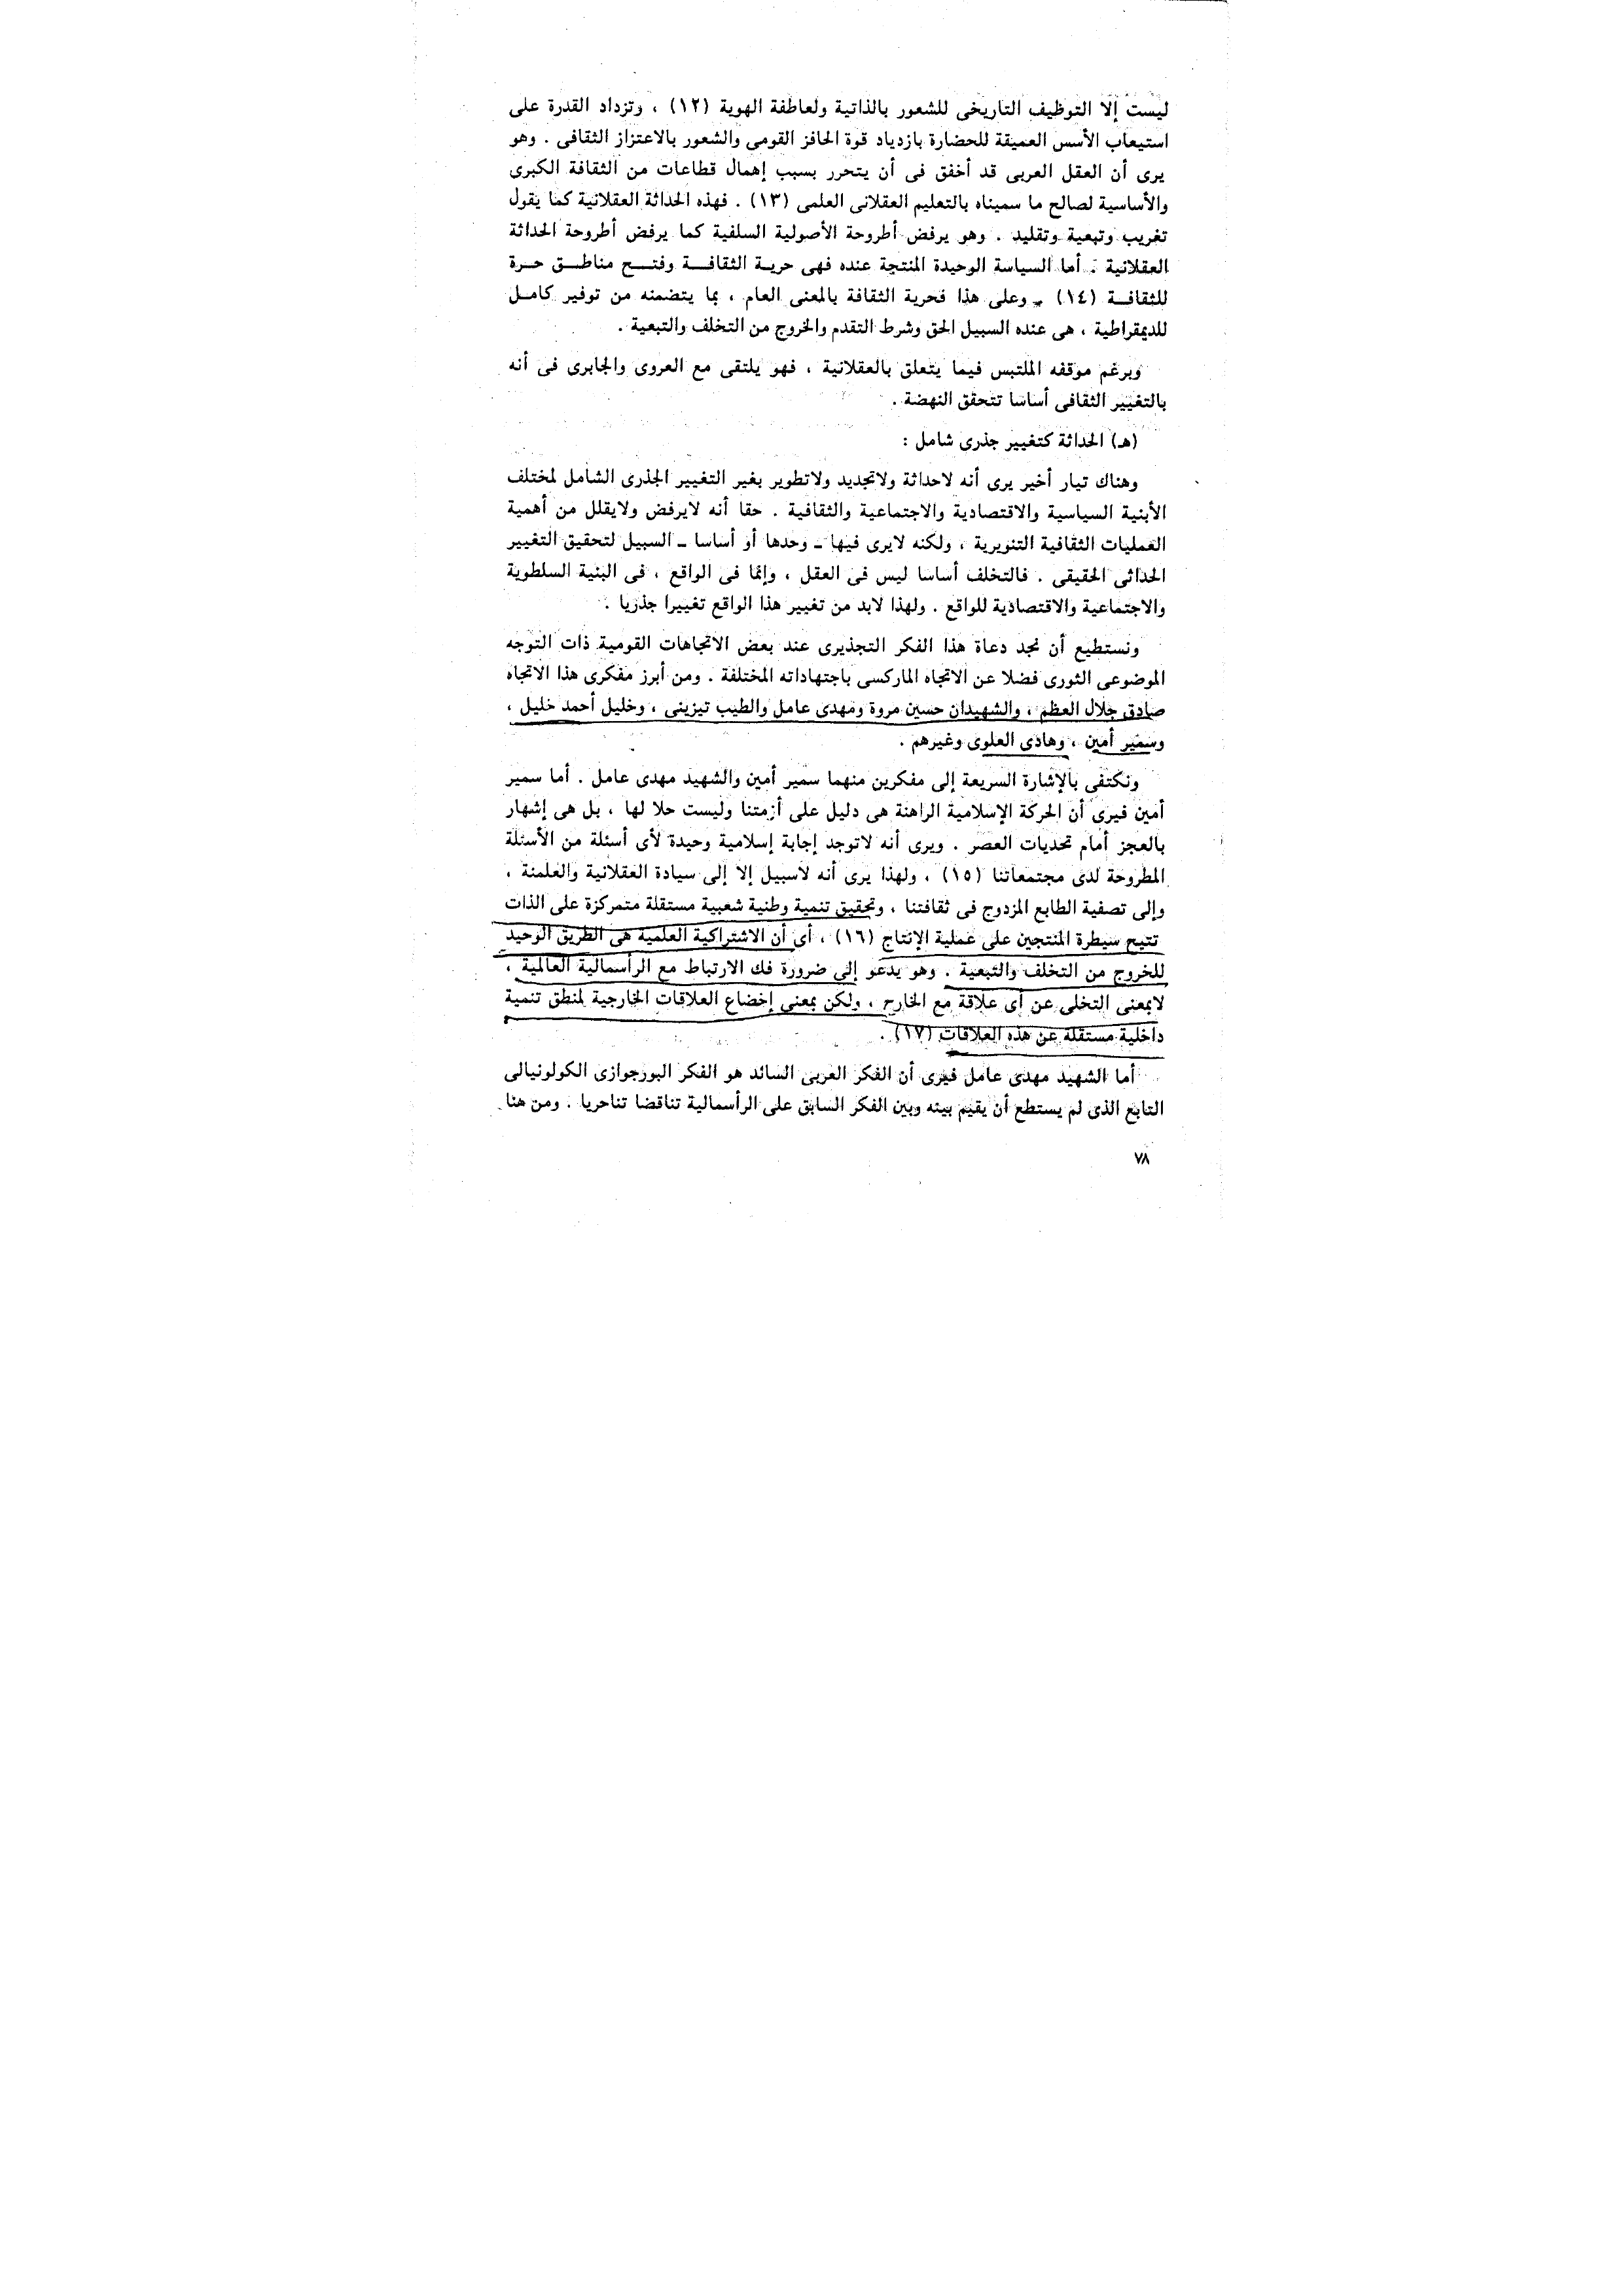 ليست إلا التوظيف التاريخى للشعور بالذاتية ولعاطفة الهوية (١٢) ، وتزداد القدرة على
استيعاب الأسس العميقة للحضارة بازدياد قوة الحافز القومى والشعور بالاعتزاز الثقافى . وهو
يرى أن العقل العربى قد أخفق فى أن يتحرر بسبب إهمال قطاعات من الثقافة الكبرى
والأساسية لصالح ما سميناه بالتعليم العقلانى العلمى (١٣) . فهذه الحداثة العقلانية كما يقول
تغريب وتبعية وتقليد . وهو يرفض أطروحة الأصولية السلفية كما يرفض أطروحة الحداثة
العقلانية . أما السياسة الوحيدة المنتجة عنده فهى حريـة الثقافـــة وفتـــح مناطــق حـرة
للثقافـــة (١٤) . وعلى هذا فحرية الثقافة بالمعنى العام ، بما يتضمنه من توفير كامـل
للديمقراطية ، هى عنده السبيل الحق وشرط التقدم والخروج من التخلف والتبعية .
وبرغم موقفه الملتبس فيما يتعلق بالعقلانية ، فهو يلتقى مع العروى والجابرى فى أنه
بالتغيير الثقافى أساسا تتحقق النهضة .
(هـ) الحداثة كتغيير جذرى شامل :
وهناك تيار أخير يرى أنه لاحداثة ولاتجديد ولاتطوير بغير التغيير الجذرى الشامل لمختلف
الأبنية السياسية والاقتصادية والاجتماعية والثقافية . حقا أنه لايرفض ولايقلل من أهمية
العمليات الثقافية التنويرية ، ولكنه لايرى فيها ـ وحدها أو أساسا ـ السبيل لتحقيق التغيير
الحداثى الحقيقى . فالتخلف أساسا ليس فى العقل ، وإنما فى الواقع ، فى البنية السلطوية
والاجتماعية والاقتصادية للواقع . ولهذا لابد من تغيير هذا الواقع تغييرا جذريا .
ونستطيع أن نجد دعاة هذا الفكر التجذيرى عند بعض الاتجاهات القومية ذات التوجه
الموضوعى الثورى فضلا عن الاتجاه الماركسى باجتهاداته المختلفة . ومن أبرز مفكرى هذا الاتجاه
صادق جلال العظم ، والشهيدان حسين مروة ومهدى عامل والطيب تيزينى ، وخليل أحمد خليل ،
وسمير أمين ، وهادى العلوى وغيرهم .
ونكتفى بالإشارة السريعة إلى مفكرين منهما سمير أمين والشهيد مهدى عامل . أما سمير
أمين فيرى أن الحركة الإسلامية الراهنة هى دليل على أزمتنا وليست حلا لها ، بل هى إشهار
بالعجز أمام تحديات العصر . ويرى أنه لاتوجد إجابة إسلامية وحيدة لأى أسئلة من الأسئلة
المطروحة لدى مجتمعاتنا (١٥) ، ولهذا يرى أنه لاسبيل إلا إلى سيادة العقلانية والعلمنة ،
وإلى تصفية الطابع المزدوج فى ثقافتنا ، وتحقيق تنمية وطنية شعبية مستقلة متمركزة على الذات
تتيح سيطرة المنتجين على عملية الإنتاج (١٦) ، أى أن الاشتراكية العلمية هى الطريق الوحيد
للخروج من التخلف والتبعية . وهو يدعو إلى ضرورة فك الارتباط مع الرأسمالية العالمية ،
لابمعنى التخلى عن أى علاقة مع الخارج ، ولكن بمعنى إخضاع العلاقات الخارجية لمنطق تنمية
داخلية مستقلة عن هذه العلاقات (١٧) .
أما الشهيد مهدى عامل فيرى أن الفكر العربى السائد هو الفكر البورجوازى الكولونيالى
التابع الذى لم يستطع أن يقيم بينه وبين الفكر السابق على الرأسمالية تناقضا تناحريا . ومن هنا
٧٨